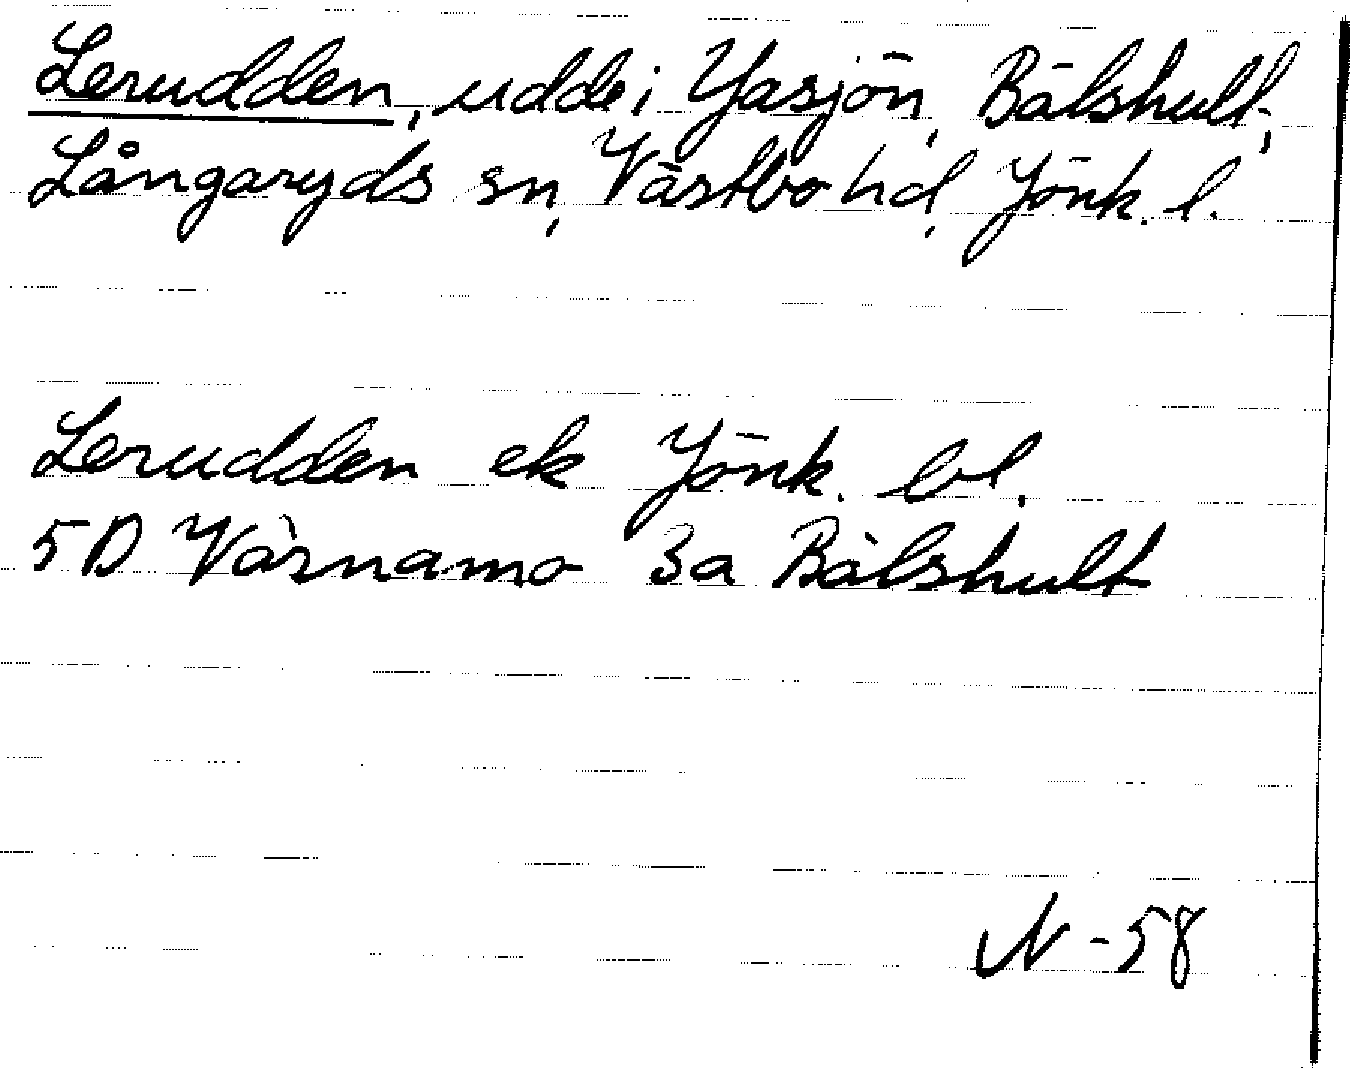 Lerudden, udde i Yasjön, Bälshult,
Långaryds sn, Västbo hd, Jönk. l.
Lerudden ek Jönk. bl.
5D Värnamo 3a Bälshult
N-58